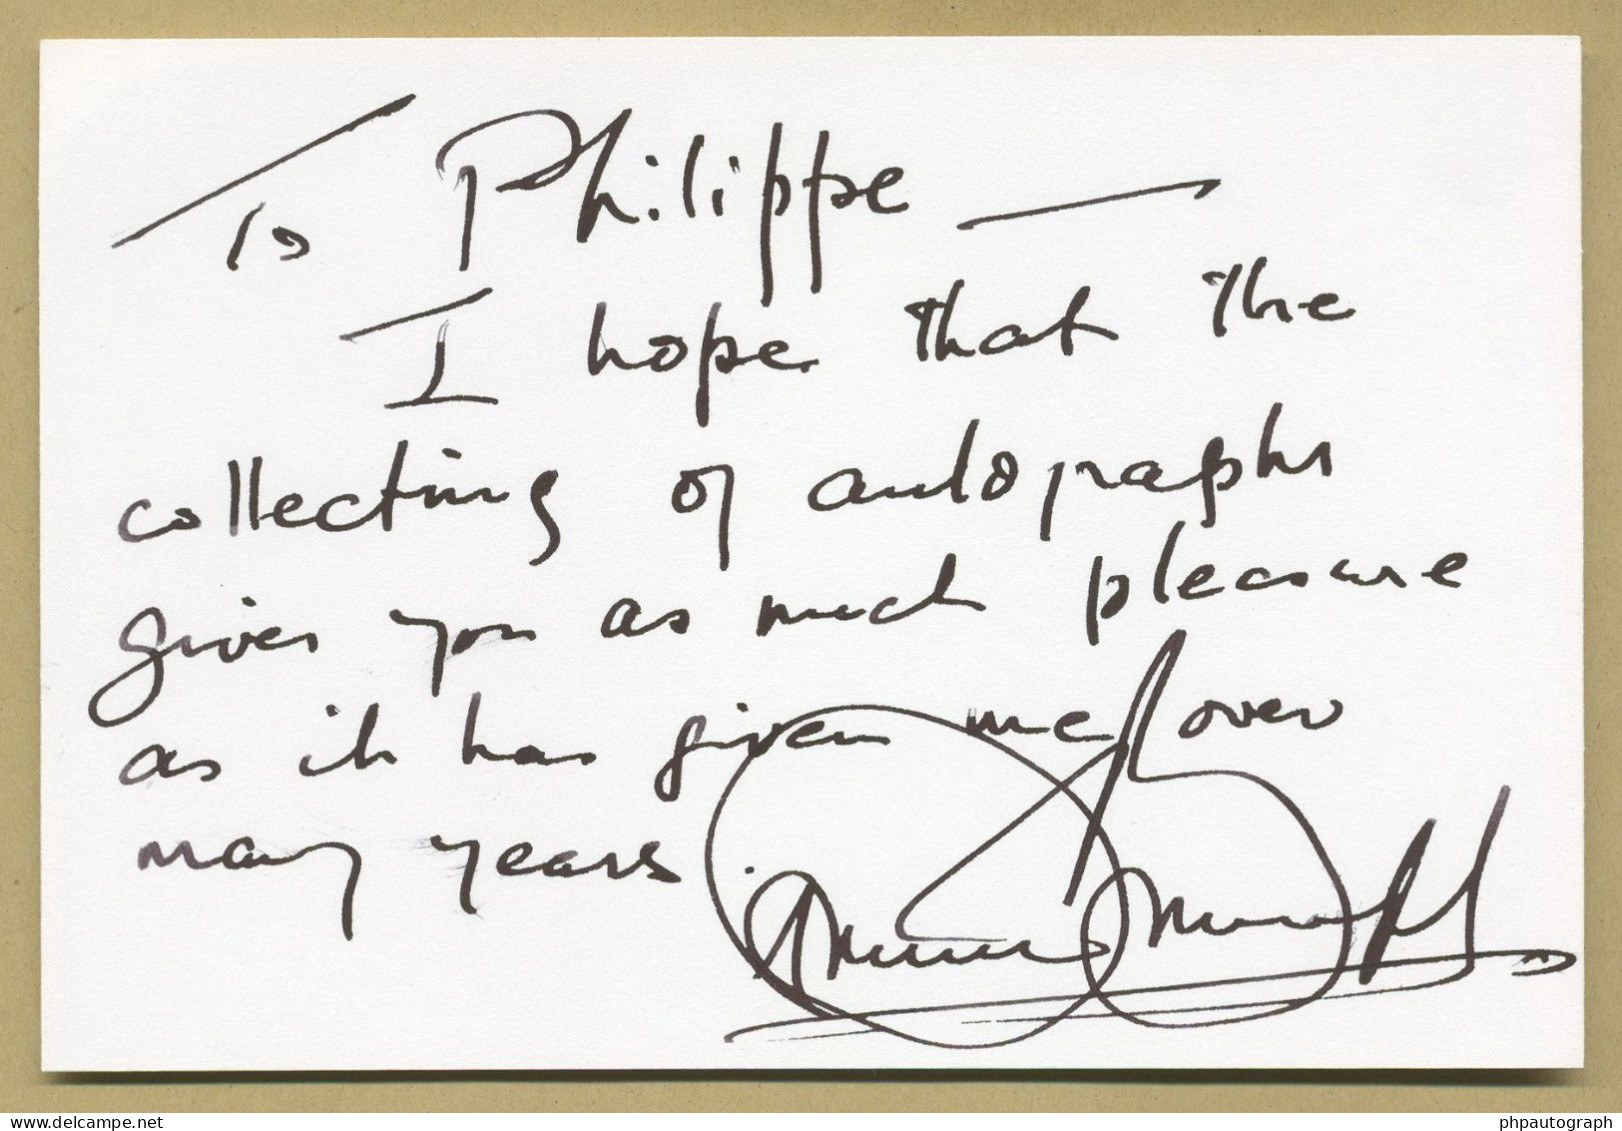 To Philippe —
I hope that the
collecting of autographs
gives you as much pleasure
as it has given me over
many years.
www.delcampe.net
phpautograph